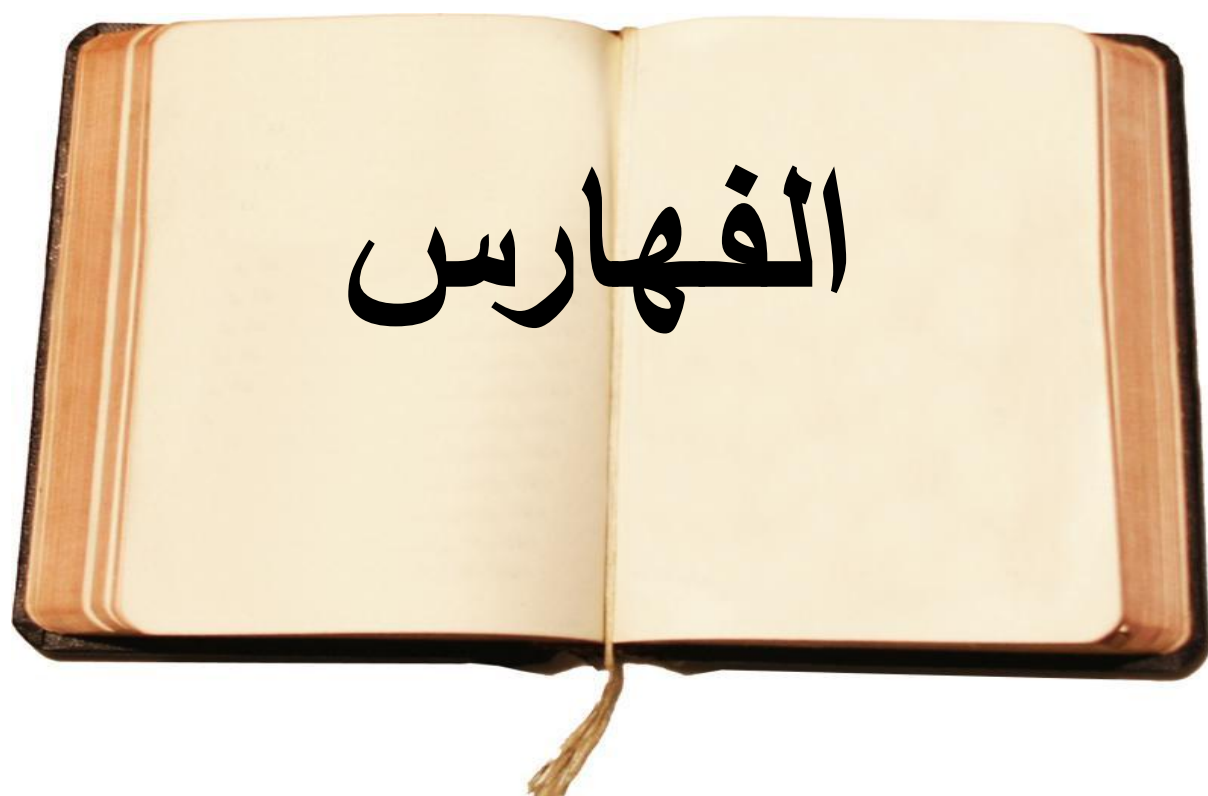 الفهارس